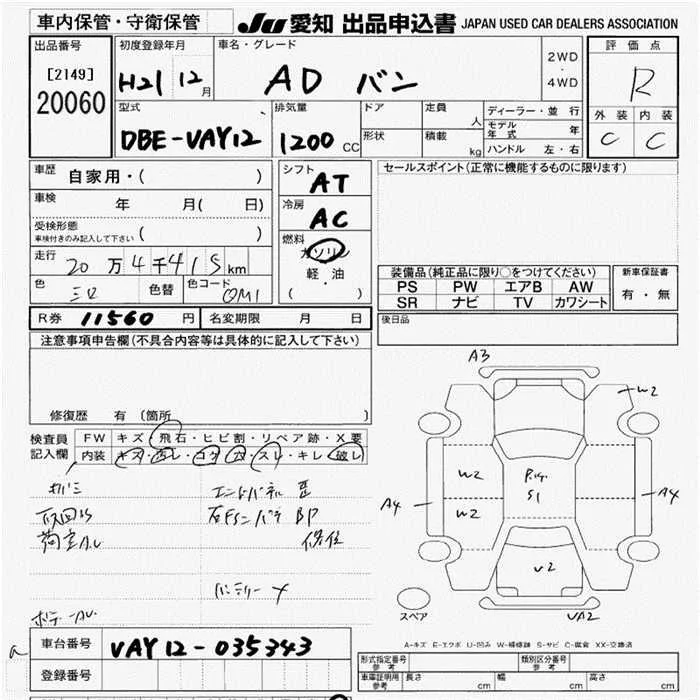 車内保管・守衛保管
JU 愛知 出品申込書 JAPAN USED CAR DEALERS ASSOCIATION
出品番号
[2149]
20060
初度登録年月
H21 12月
車名・グレード
AD バン
2WD
・
4WD
評価点
R
外装 内装
C C
型式
DBE-VAY12
排気量
1200 CC
ドア
形状
定員 人
積載 kg
ディーラー・並行
モデル年式 年
ハンドル 左・右
車歴 自家用・( )
車検 年 月( 日)
受検形態
車検付きのみ記入して下さい ( )
走行 20万4千415km
色 色替 色コード
シフト
AT
冷房
AC
燃料
ガソリン
・
軽油
( )
セールスポイント(正常に機能するものに限ります)
装備品(純正品に限り○をつけてください)
PS PW エアB AW
SR ナビ TV カワシート
新車保証書
有・無
後日品
R券 11560円 名変期限 月 日
注意事項申告欄(不具合内容等は具体的に記入して下さい)
修復歴 有 (箇所 )
検査員記入欄
FW キズ・飛石・ヒビ割・リペア跡・X要
内装 キズ・汚レ・コゲ・穴・スレ・キレ・破レ
バッテリー X
A3
W2
W2
W2
A4
A4
S1
U2
UA2
スペア
A-キズ E-エクボ U-凹み W-補修跡 S-サビ C-腐食 XX-交換済
車台番号 VAY12-035343
登録番号
形式指定番号 参考
類別区分番号 参考
車庫証明用 参考 長さ cm 幅 cm 高さ cm